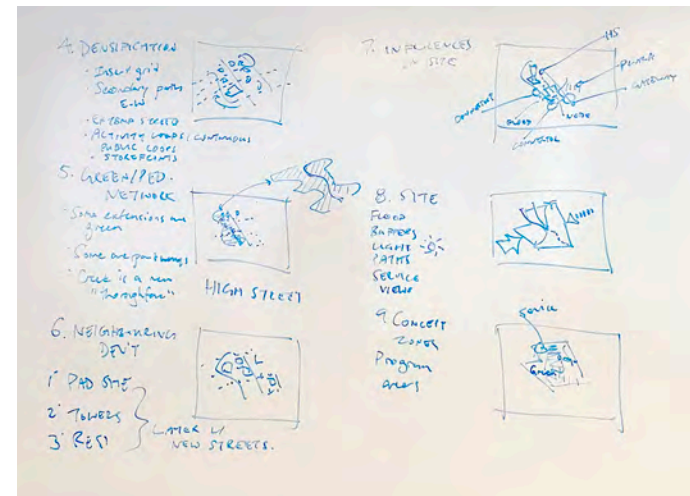 4. DENSIFICATION
· INSERT GRID
SECONDARY PATHS
E-W
· EXTEND STREET
· ACTIVITY LOOPS / CONTINUOUS
PUBLIC LOOPS
· STOREFRONTS
5. GREEN/PED.
NETWORK
· Some extensions are
green
· Some are
· Creek is a new
"thoroughfare"
HIGH STREET
6. NEIGHBOURING
DEV'T
1 PAD SITE
2 TOWERS
3 RESI
LATER W/
NEW STREETS.
7. INFLUENCES
ON SITE
HS
GATEWAY
NODE
FLOOD
CONNECTOR
8. SITE
FLOOD
BUFFERS
LIGHT
PATHS
SERVICE
VIEWS
9. CONCEPT
ZONES
Program
areas
Service
Green